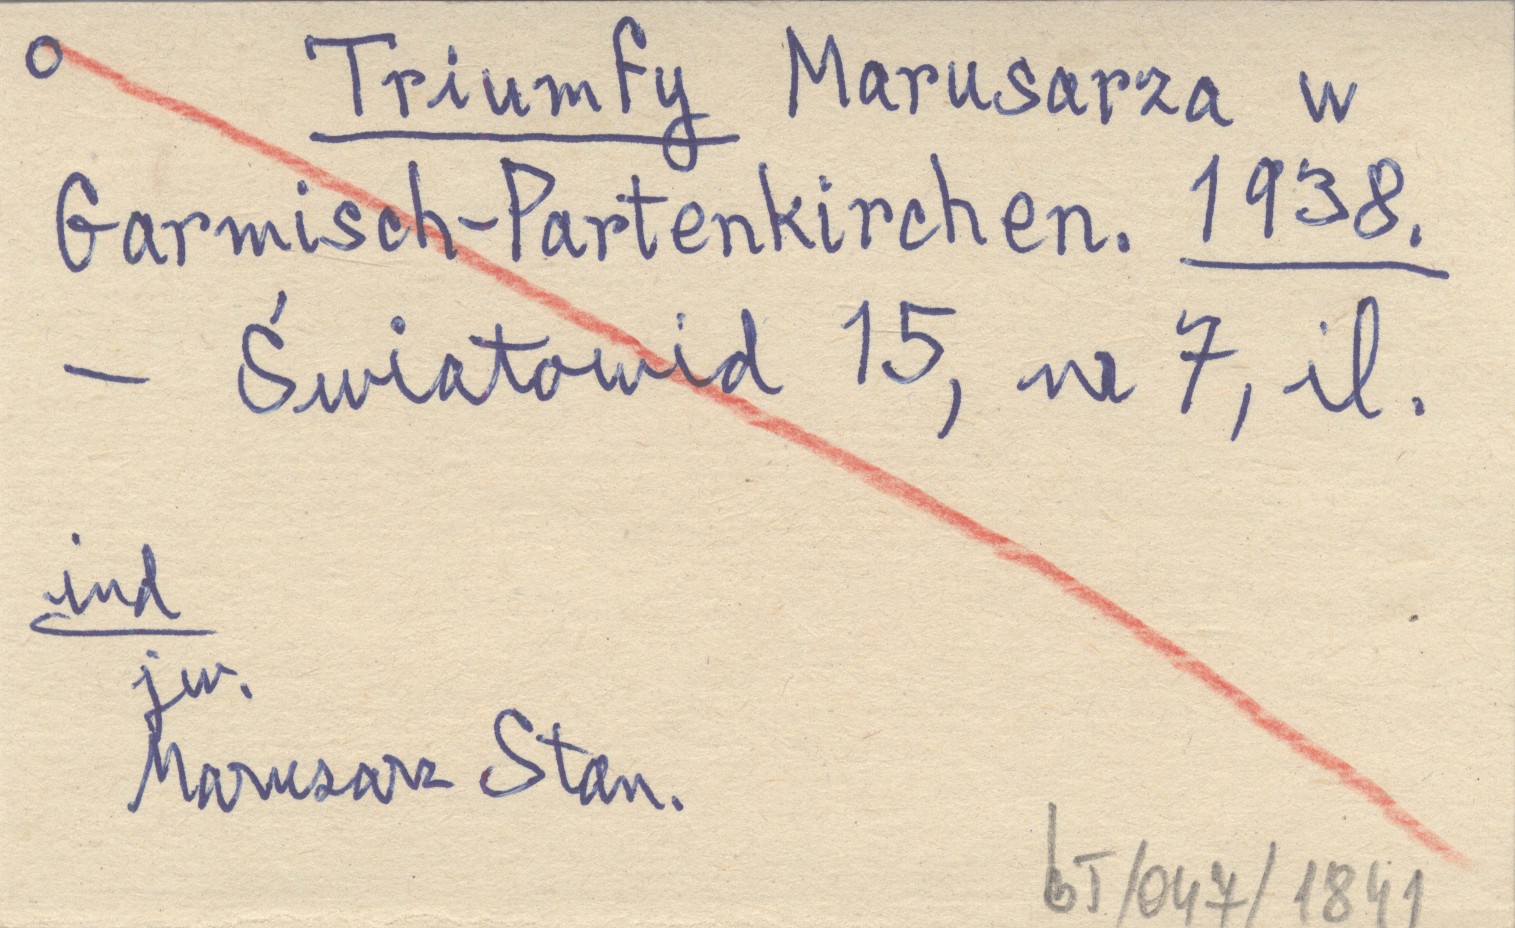 o Triumfy Marusarza w
Garmisch-Partenkirchen. 1938.
— Światowid 15, nr 7, il.
ind
jw.
Marusarz Stan.
bT/047/1841